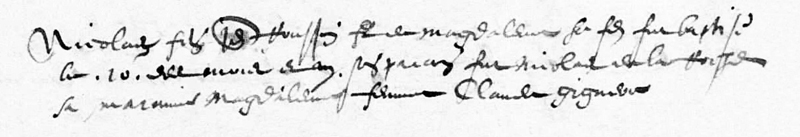 Nicolas filz Jean Rousson et de Magdalene sa fe fut baptisé
le .10. dud mois et an. son parain fut Nicolas de la
sa maraine Magdalene femme Claude Gigneux